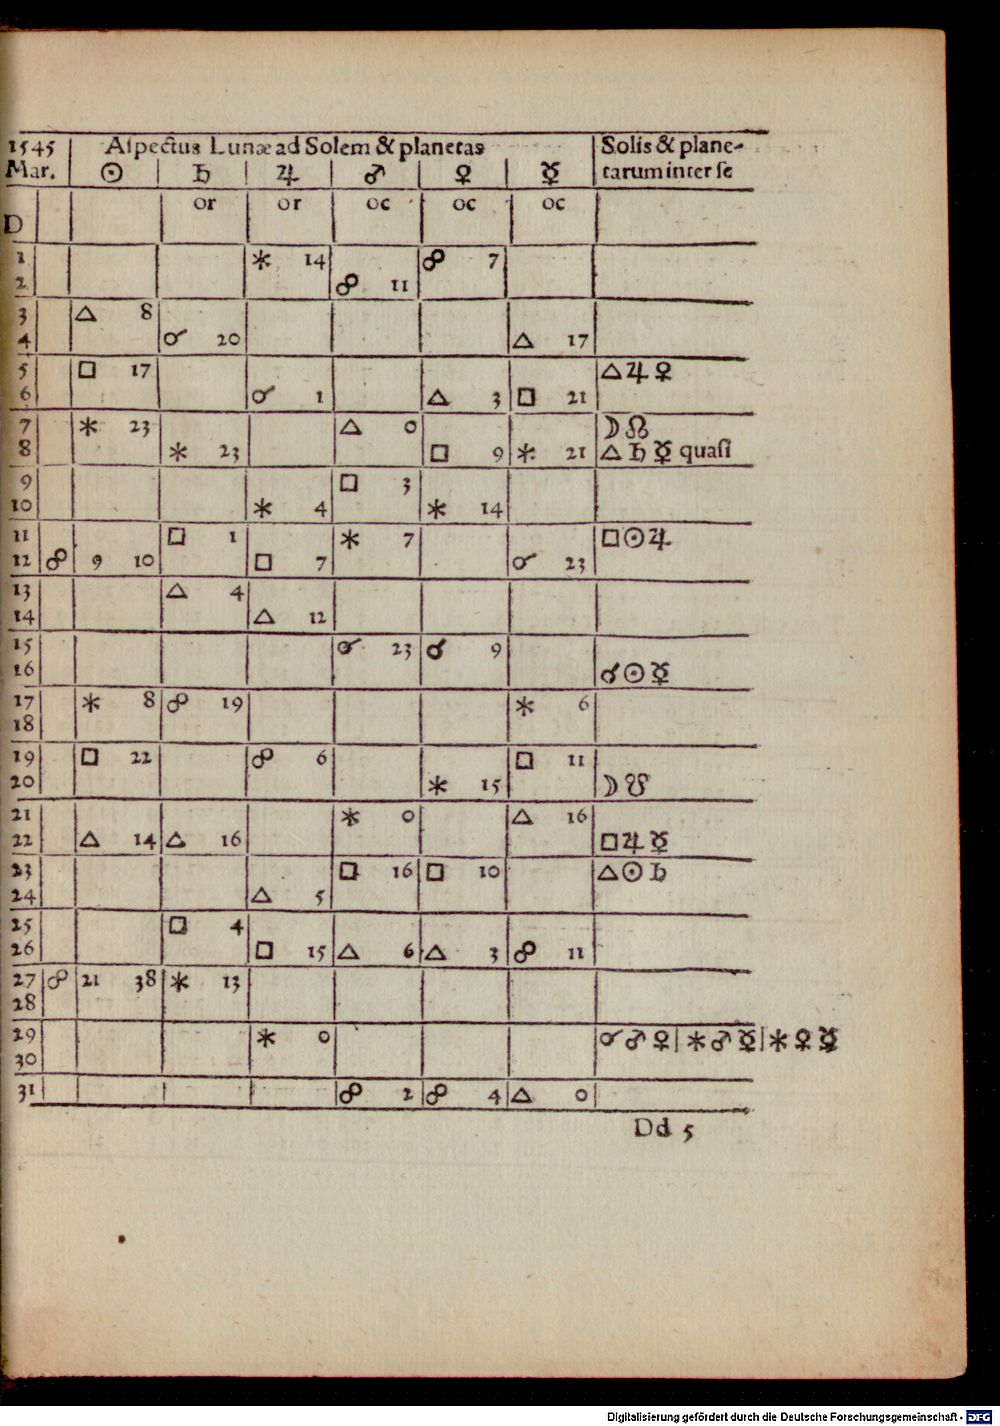 1545 Aspectus Lunæ ad Solem & planetas Solis & plane-
Mar. ☉ ♄ ♃ ♂ ♀ ☿ tarum inter se
D or or oc oc oc
1 ⚹ 14 ☍ 7
2 ☍ 11
3 △ 8
4 ☌ 20 △ 17
5 □ 17 △ ♃ ♀
6 ☌ 1 △ 3 □ 21
7 ⚹ 23 △ 0 ☽ ☊
8 ⚹ 23 □ 9 ⚹ 21 △ ♄ ☿ quasi
9 □ 3
10 ⚹ 4 ⚹ 14
11 □ 1 ⚹ 7 □ ☉ ♃
12 ☍ 9 10 □ 7 ☌ 23
13 △ 4
14 △ 12
15 ☌ 23 ☌ 9
16 ☌ ☉ ☿
17 ⚹ 8 ☍ 19 ⚹ 6
18
19 □ 22 ☍ 6 □ 11
20 ⚹ 15 ☽ ☋
21 ⚹ 0 △ 16
22 △ 14 △ 16 □ ♃ ☿
23 □ 16 □ 10 △ ☉ ♄
24 △ 5
25 □ 4
26 □ 15 △ 6 △ 3 ☍ 11
27 ☍ 21 38 ⚹ 13
28
29 ⚹ 0 ☌ ♂ ♀ | ⚹ ♂ ☿ | ⚹ ♀ ☿
30
31 ☍ 2 ☍ 4 △ 0
Dd 5
Digitalisierung gefördert durch die Deutsche Forschungsgemeinschaft - DFG